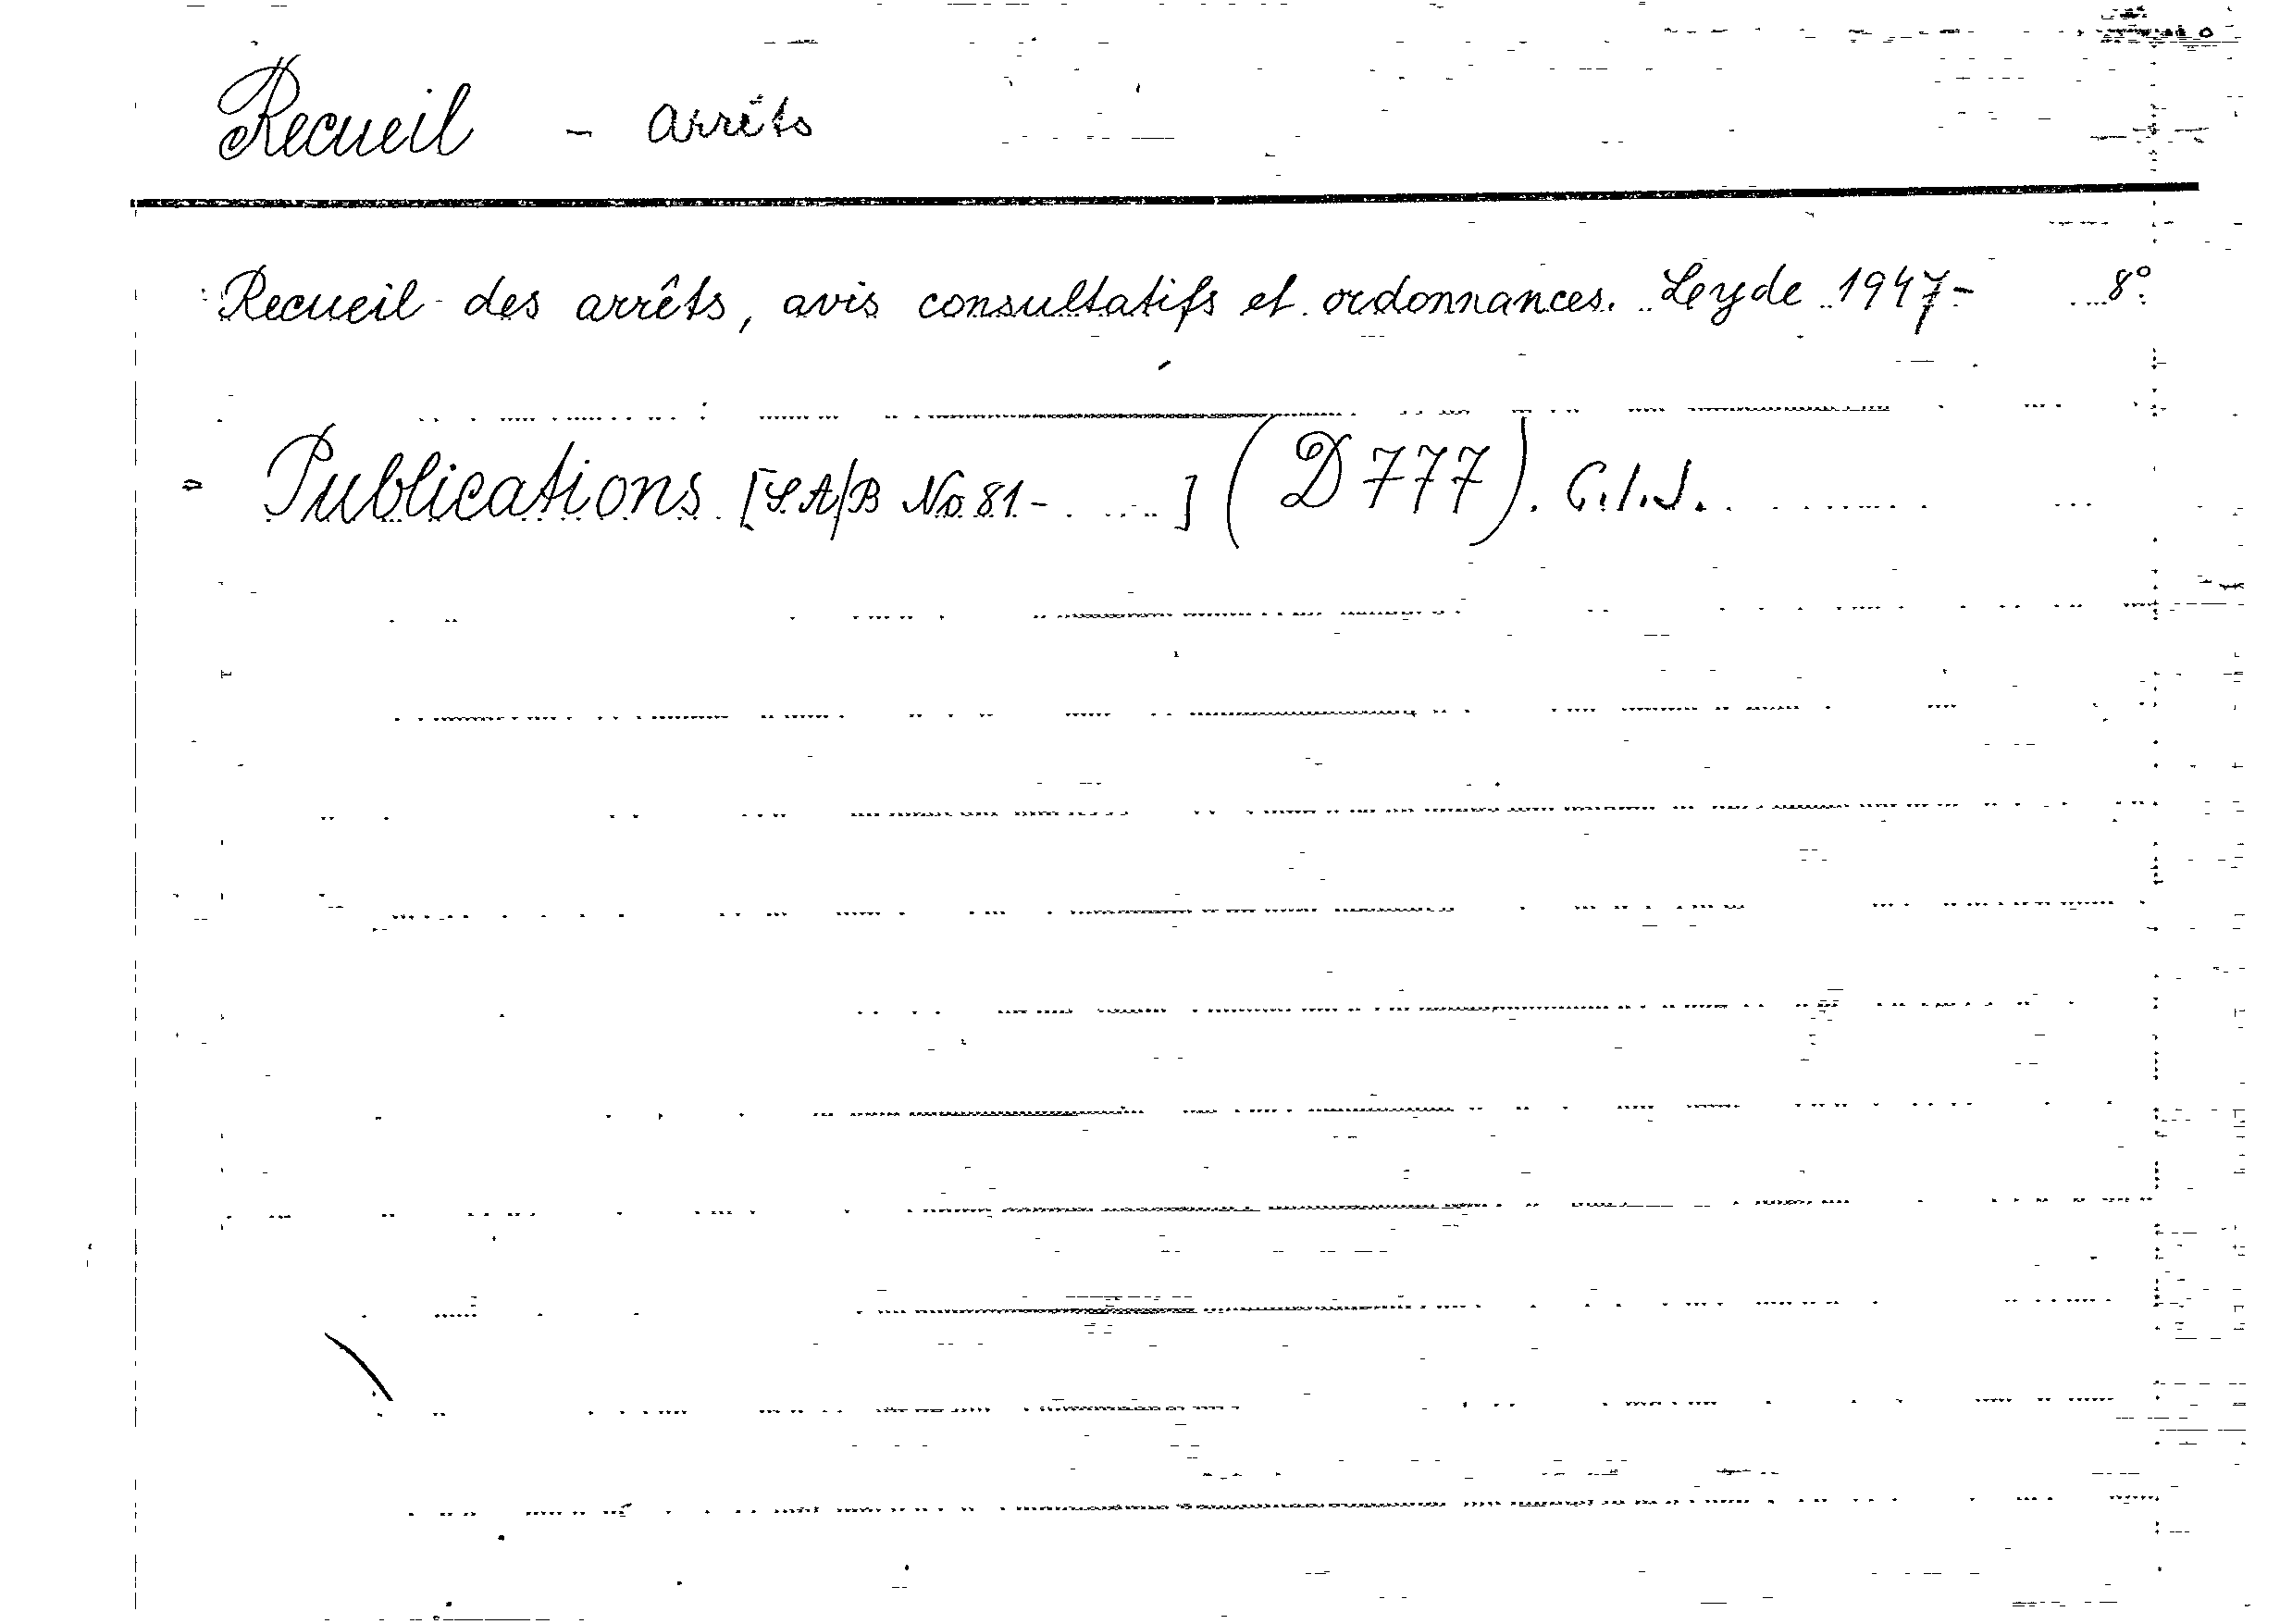 Recueil - arrêts
Recueil des arrêts, avis consultatifs et ordonnances. Leyde 1947- 8°.
= Publications [S.A/B No. 81- ] (D 777). C.I.J.